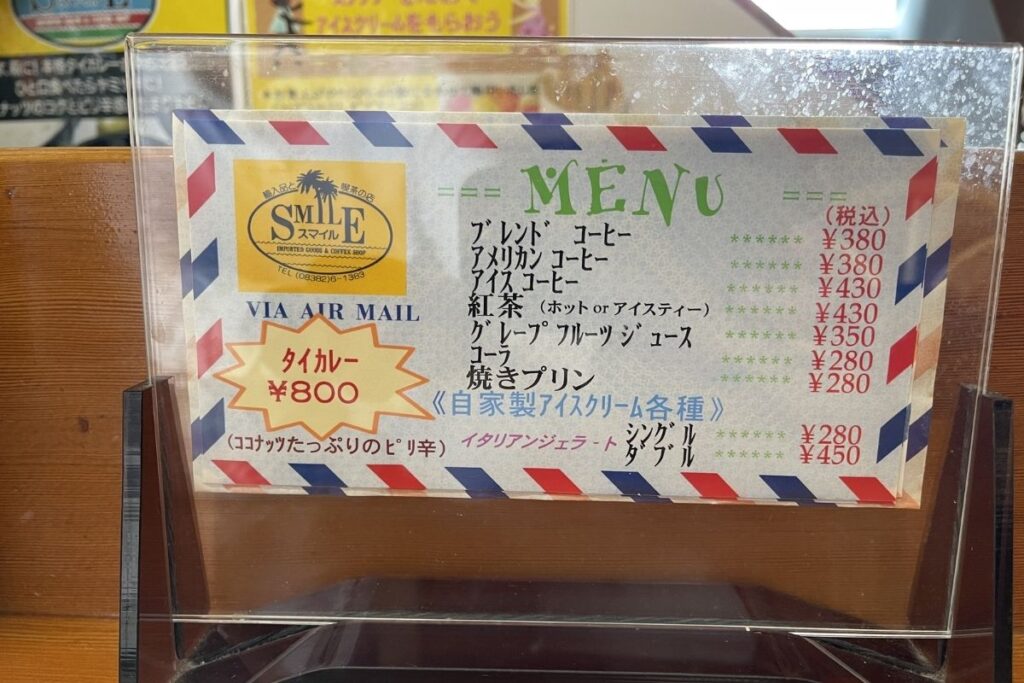 アイスクリームをもらおう
輸入品と 喫茶の店
SMILE
スマイル
IMPORTED GOODS & COFFEE SHOP
TEL (08382)6-1383
VIA AIR MAIL
タイカレー
¥800
(ココナッツたっぷりのピリ辛)
=== MENU ===
(税込)
ブレンド コーヒー ****** ¥380
アメリカン コーヒー ****** ¥380
アイス コーヒー ****** ¥430
紅茶 (ホット or アイスティー) ****** ¥430
グレープフルーツジュース ****** ¥350
コーラ ****** ¥280
焼きプリン ****** ¥280
《自家製アイスクリーム各種》
イタリアンジェラ-ト シングル ****** ¥280
ダブル ****** ¥450